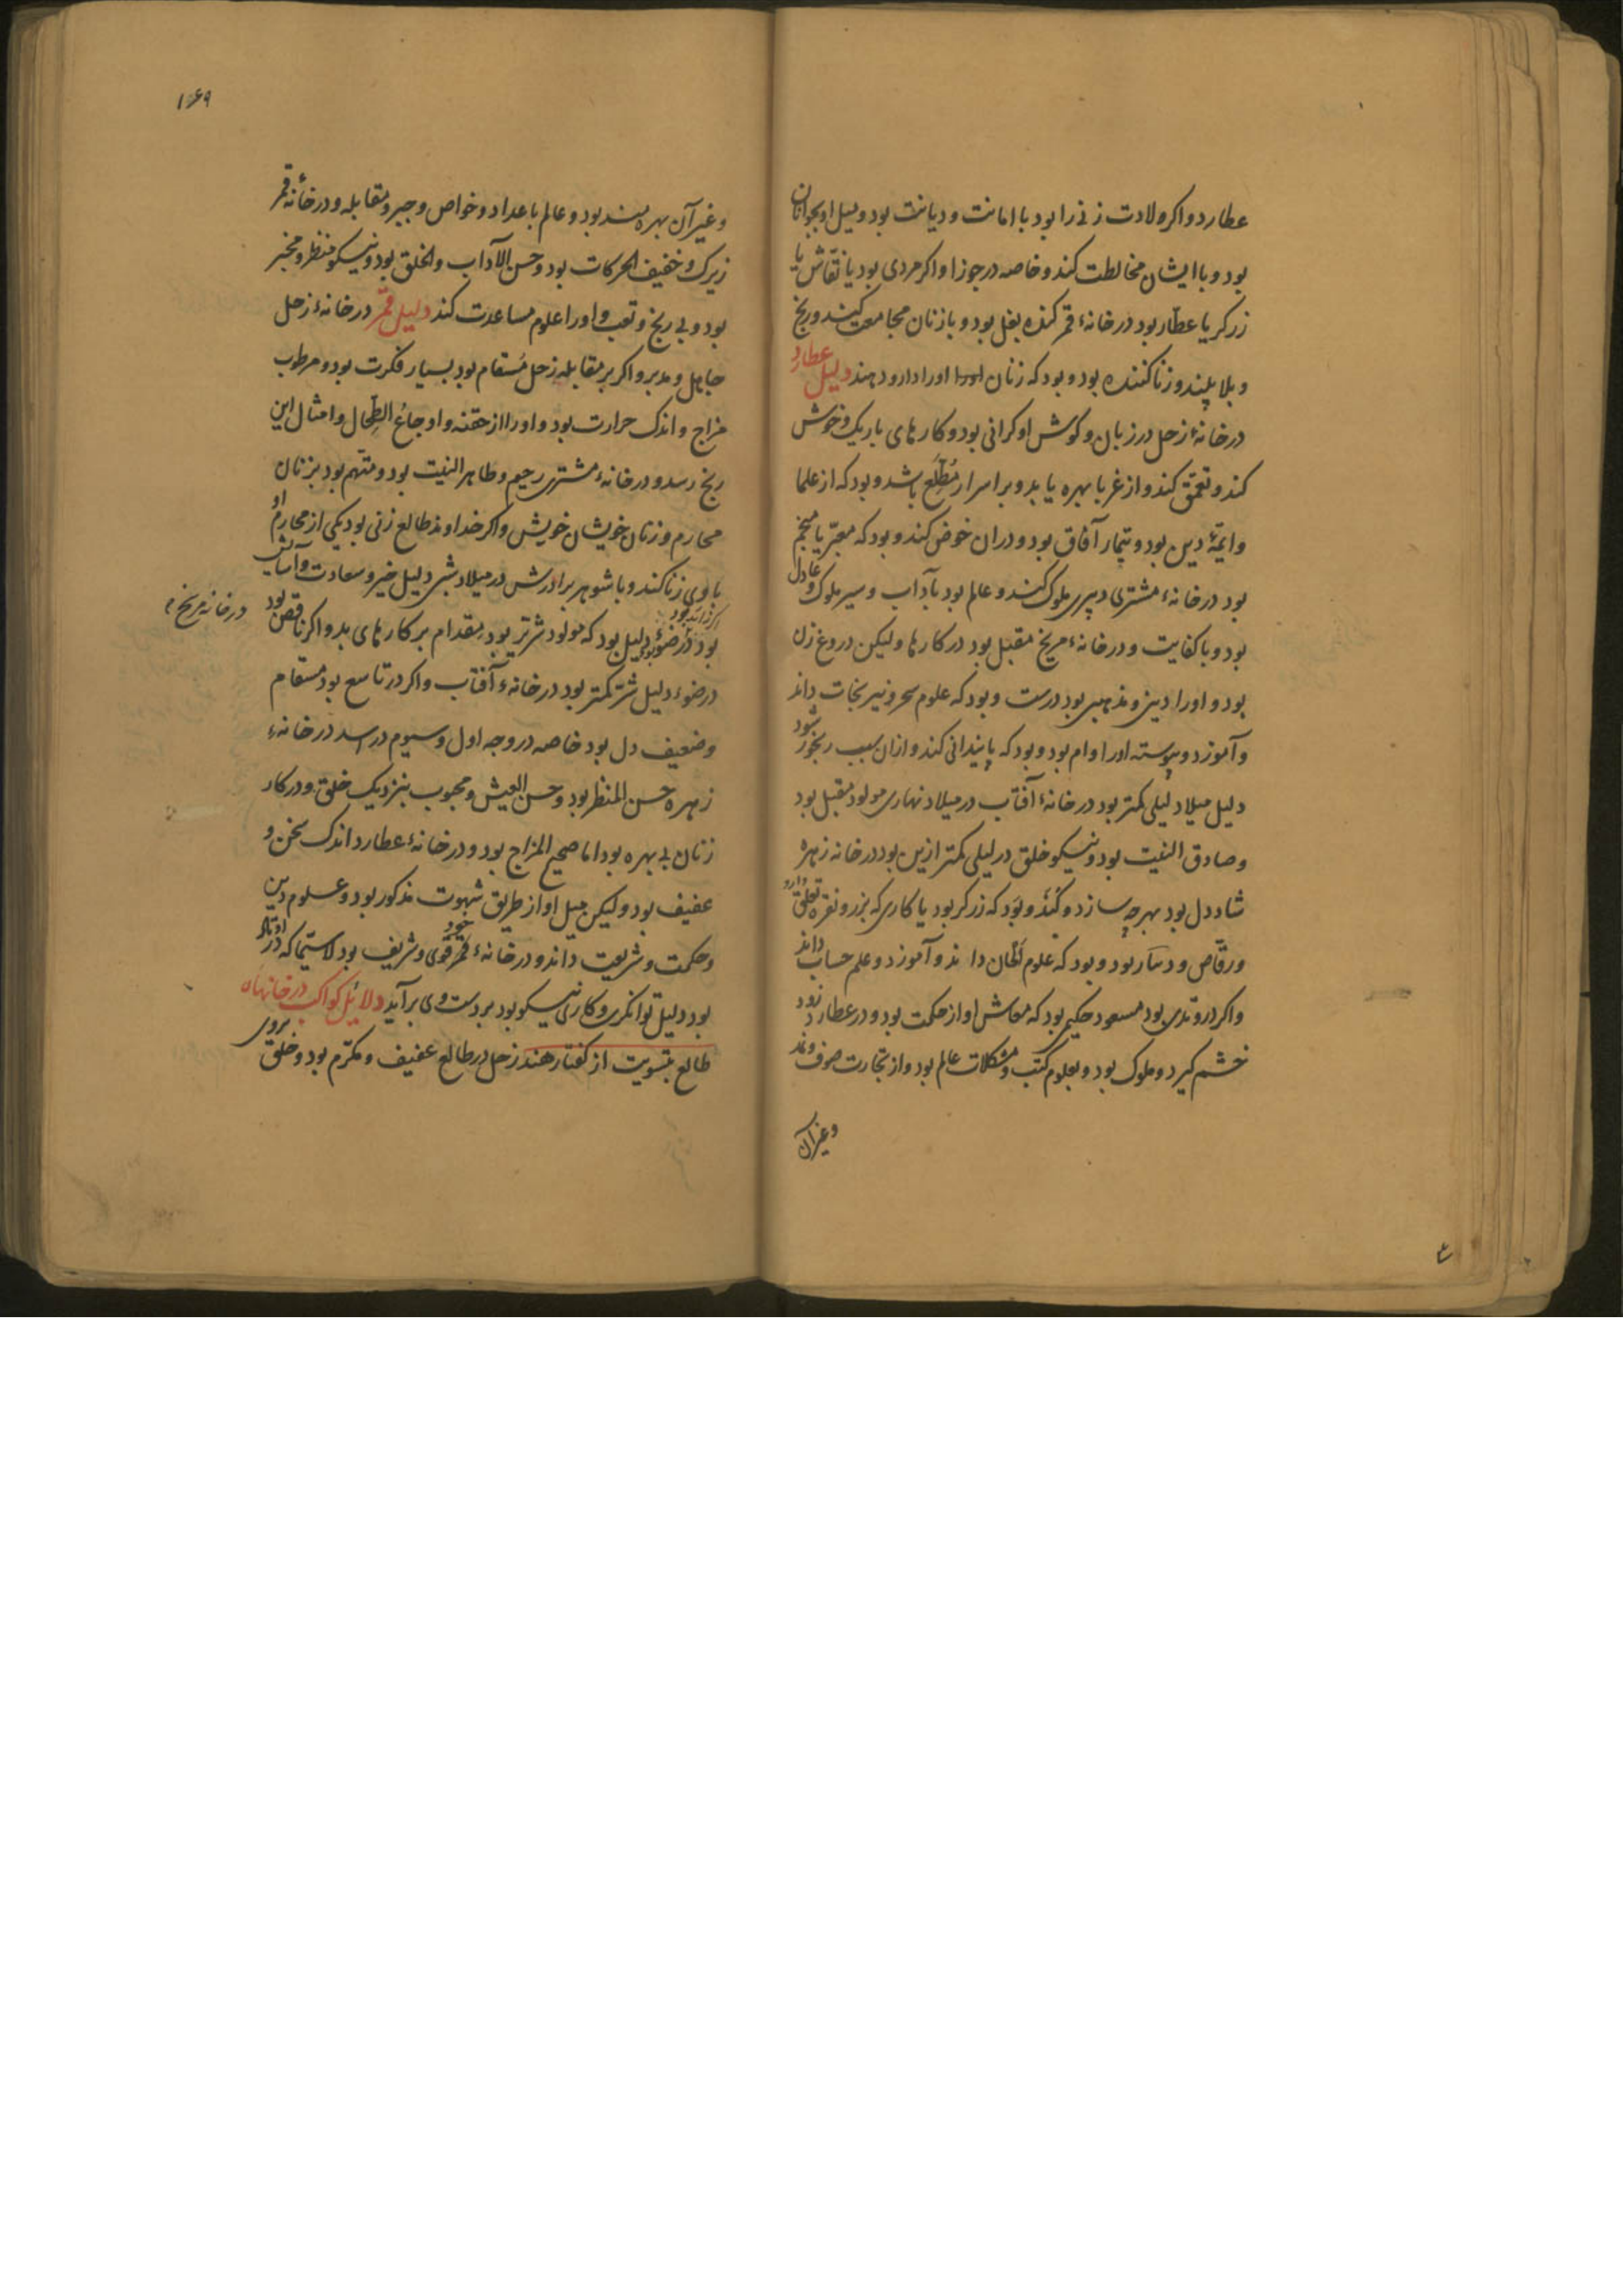 عطارد و اکر ولادت زنی را بود با امانت و دیانت بود و میل او بجوانان
بود و با ایشان مخالطت کند و خاصه در جوزا و اکر مردی بود یا نقّاش یا
زرکر یا عطّار بود در خانهٔ قمر کنده بغل بود و با زنان مجامعت کند و رنج
و بلا بیند و زنا کننده بود و بود که زنان اورا دارو دهند دلیل عطارد
در خانهٔ زحل در زبان و کوش او کرانی بود و کارهای باریک و خوش
کند و تعمّق کند و از غربا بهره یابد و بر اسرار مُطّلِع باشد و بود که از علما
و ایمّهٔ دین بود و تیمار آفاق بود و در ان خوض کند و بود که معبّر یا منجّم
بود در خانهٔ مشتری دبیری ملوک کند و عالم بود بآداب و سیر ملوک و عادل
بود و با کفایت و در خانهٔ مریخ مقبل بود در کارها ولیکن دروغ زن
بود و اورا دین و مذهبی بود درست و بود که علوم سحر و نیرنجات داند
و آموزد و پیوسته اورا وام بود و بود که پایندانی کند و از ان سبب رنجور شود
دلیل میلاد لیلی کمتر بود در خانهٔ آفتاب در میلاد نهاری مولود مقبل بود
و صادق النیت بود و نیکو خلق در لیلی کمتر ازین بود در خانهٔ زهره
شاد دل بود بهرچه سازد و کند و بود که زرکر بود یا کاری که بزر و نقره تعلّق دارد
و رقّاص و بود و بود که علوم الحان داند و آموزد و علم حساب داند
و اکر در وتدی بود مسعود حکیم بود که معاش او از حکمت بود و در عطارد زود
خشم کیرد و ملوک بود و بعلوم کتب و مشکلات عالم بود و از تجارت صوف
و غیر آن
۱۶۹
و غیر آن بهره‌مند بود و عالم باعداد و خواص و جبر و مقابله و در خانهٔ قمر
زیرک و خفیف الحرکات بود و حسن الآداب و الخلق بود و نیکو منظر و مخبر
بود و بی رنج و تعب و اورا علوم مساعدت کند دلیل قمر در خانهٔ زحل
جاهل و مدبر و اکر بر مقابله زحل مُسقام بود بسیار فکرت بود و مرطوب
مزاج و اندک حرارت بود و اورا از حقنه و اوجاعُ الطِحال و امثال این
رنج رسد و در خانهٔ مشتری رحیم و طاهر النیت بود و متّهم بود بزنان
محارم و زنان خویشان خویش و اکر خداوند طالع زنی بود یکی از محارم او
با وی زنا کند و با شوهر برادرش در میلاد شبی دلیل خیر و سعادت و آسایش
بود در خانهٔ مریخ اکر زاید بود در ضوء دلیل بود که مولود شرّیر بود مقدام بر کارهای بد و اکر ناقص بود
در ضوء دلیل شر کمتر بود در خانهٔ آفتاب و اکر در تاسع بود مسقام
و ضعیف دل بود خاصه در وجه اول و سیوم در اسد در خانهٔ
زهره حسن المنظر بود و حسن العیش و محبوب بنزدیک خلق و در کار
زنان بی بهره بود اما صحیح المزاج بود و در خانهٔ عطارد اندک سخن و
عفیف بود ولیکن میل او از طریق شهوت مذکور بود و علوم دین
و حکمت و شریعت داند و در خانهٔ خود قمر قوی و شریف بود لاسیّما که در اوتاد
بود دلیل توانکری و کار نیکو بود بر دست وی برآید دلائل کواکب در خانهاء
طالع بتسویت از کفتار هند زحل در طالع عفیف و مکرّم بود و خلق بروی